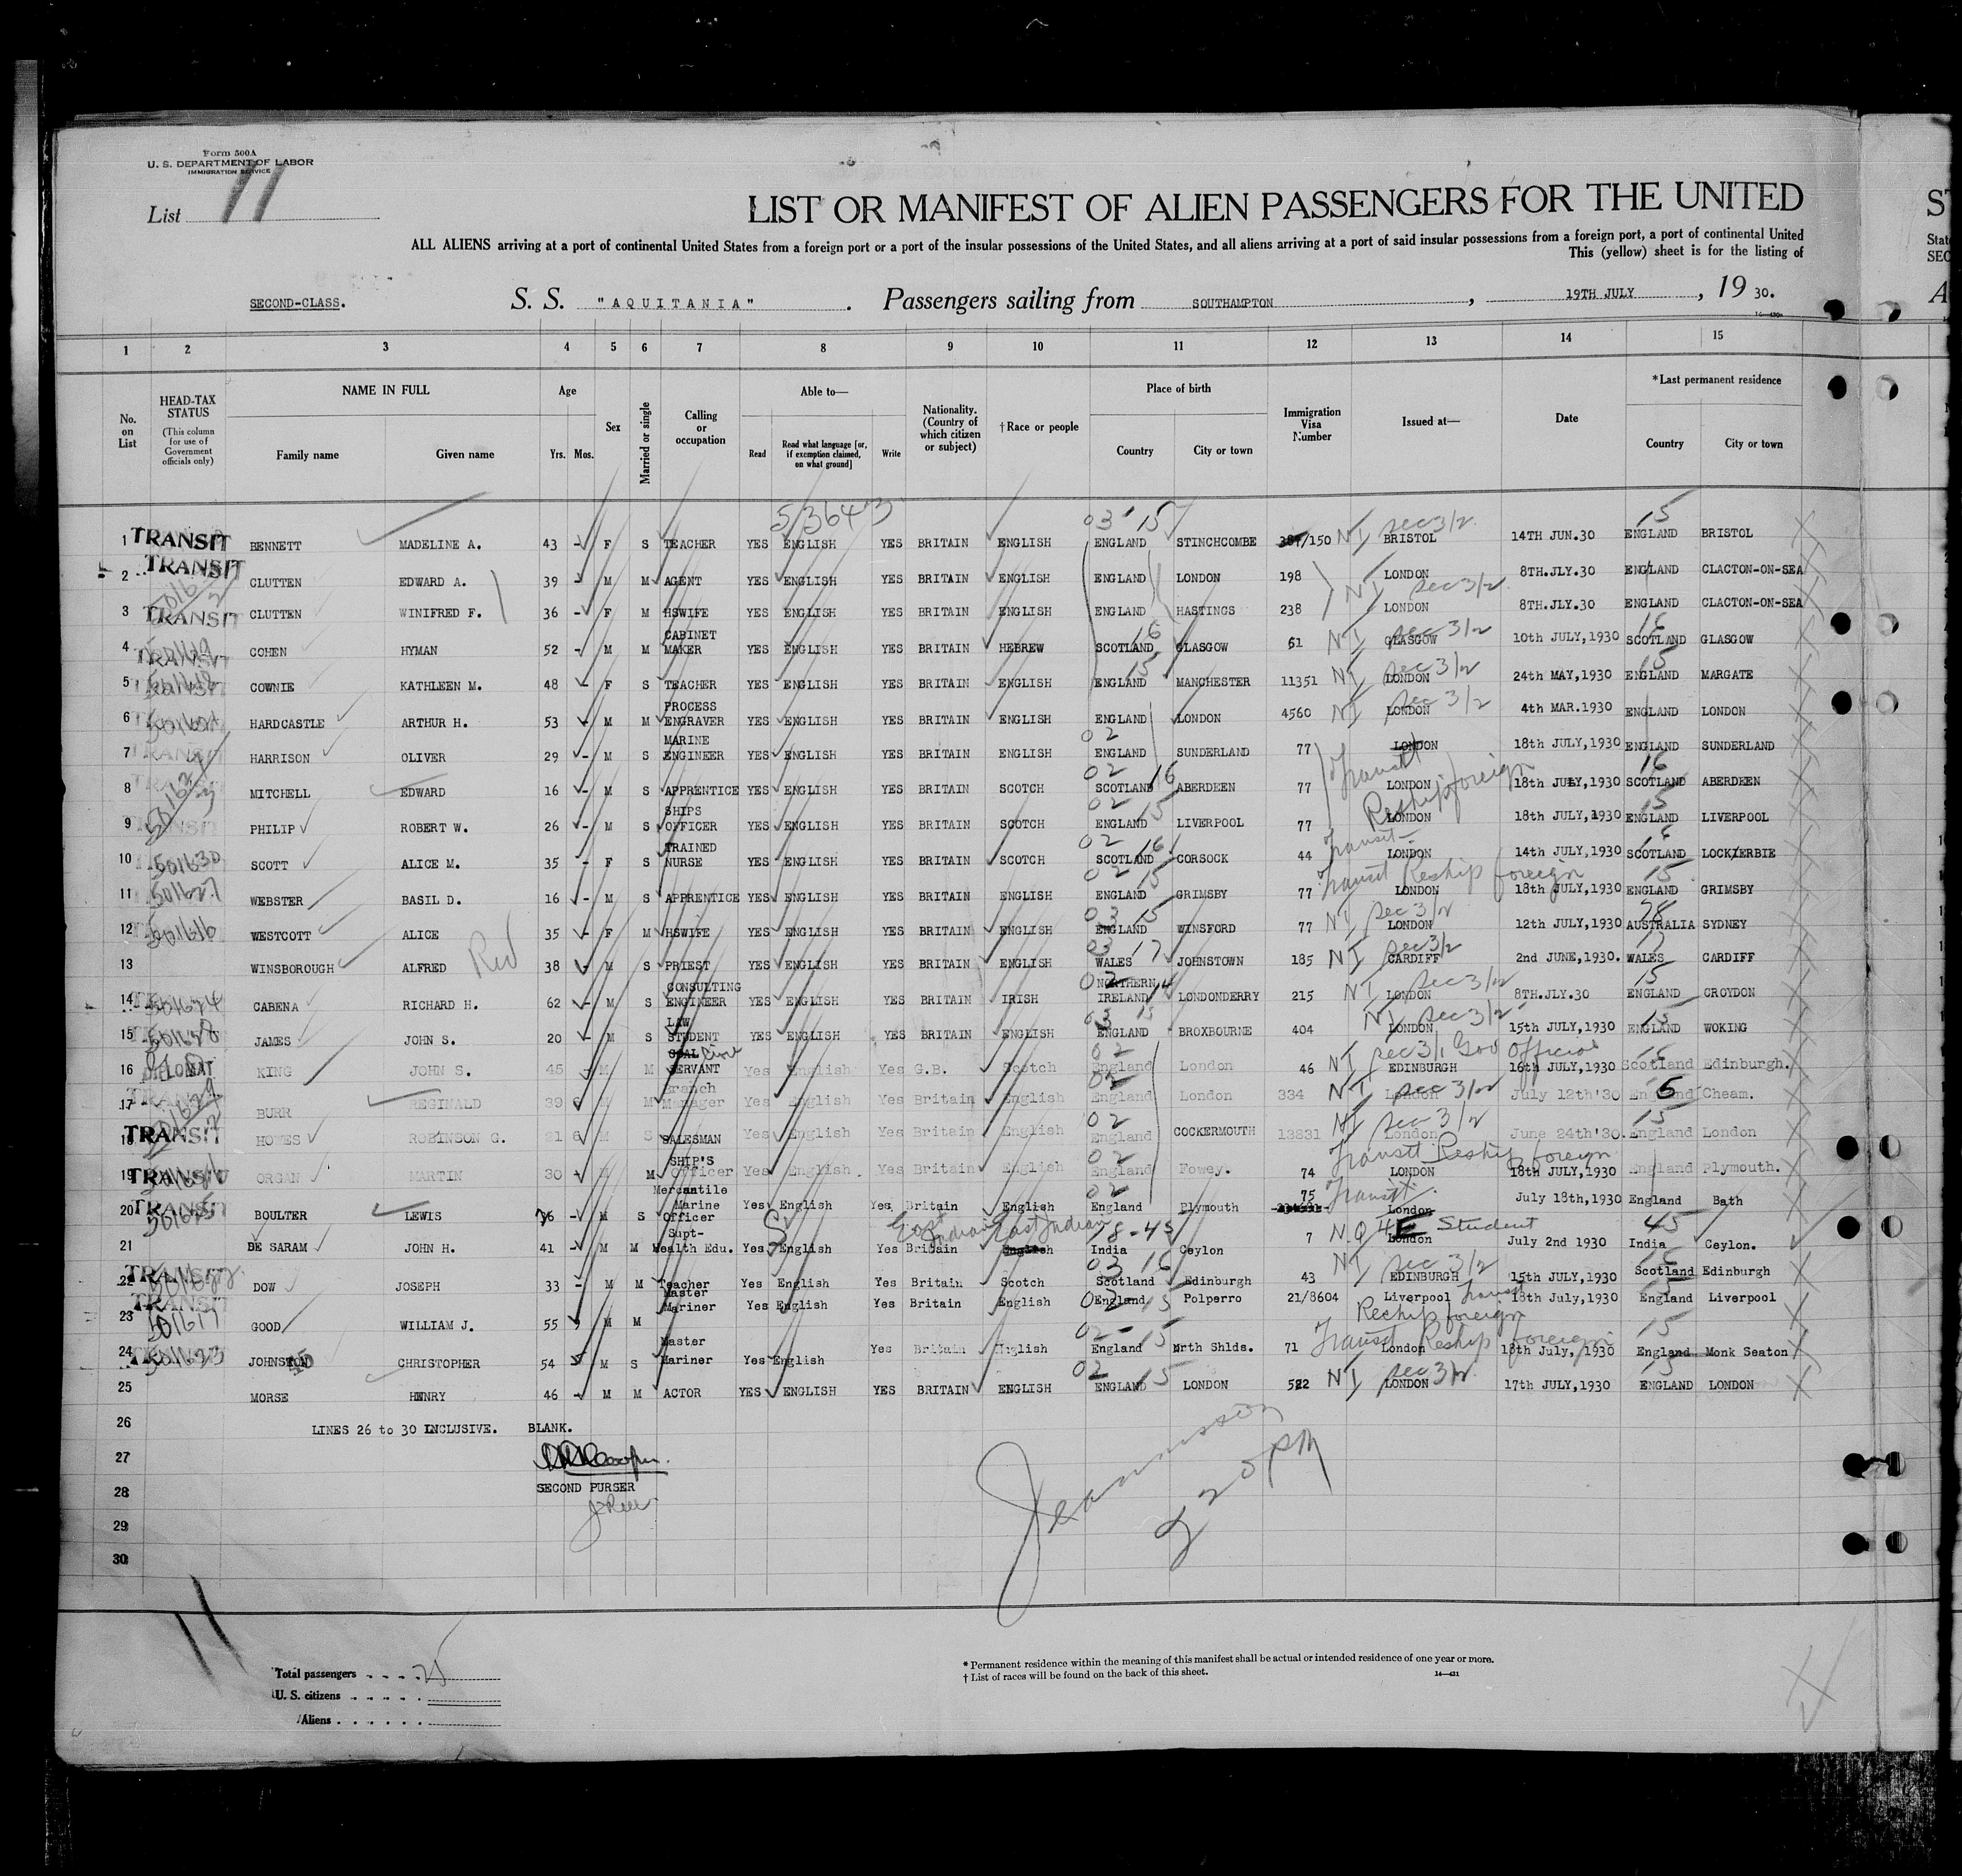 Form 500A
U. S. DEPARTMENT OF LABOR
IMMIGRATION SERVICE
List 11
LIST OR MANIFEST OF ALIEN PASSENGERS FOR THE UNITED
ALL ALIENS arriving at a port of continental United States from a foreign port or a port of the insular possessions of the United States, and all aliens arriving at a port of said insular possessions from a foreign port, a port of continental United
This (yellow) sheet is for the listing of
SECOND-CLASS. S. S. "AQUITANIA". Passengers sailing from SOUTHAMPTON, 19TH JULY, 1930.
1 2 3 4 5 6 7 8 9 10 11 12 13 14 15
No. on List
HEAD-TAX STATUS (This column for use of Government officials only)
NAME IN FULL Family name Given name
Age Yrs. Mos.
Sex
Married or single
Calling or occupation
Able to— Read Read what language [or, if exemption claimed, on what ground] Write
Nationality. (Country of which citizen or subject)
†Race or people
Place of birth Country City or town
Immigration Visa Number
Issued at—
Date
*Last permanent residence Country City or town
53643 03 15 sec 3/2 15
1 TRANSIT BENNETT MADELINE A. 43 - F S TEACHER YES ENGLISH YES BRITAIN ENGLISH ENGLAND STINCHCOMBE /150 NI BRISTOL 14TH JUN.30 ENGLAND BRISTOL
2 TRANSIT CLUTTEN EDWARD A. 39 - M M AGENT YES ENGLISH YES BRITAIN ENGLISH ENGLAND LONDON 198 LONDON 8TH.JLY.30 ENGLAND CLACTON-ON-SEA
NI sec 3/2
3 TRANSIT CLUTTEN WINIFRED F. 36 - F M HSWIFE YES ENGLISH YES BRITAIN ENGLISH ENGLAND HASTINGS 238 LONDON 8TH.JLY.30 ENGLAND CLACTON-ON-SEA
4 COHEN HYMAN 52 - M M CABINET MAKER YES ENGLISH YES BRITAIN HEBREW SCOTLAND 16 GLASGOW 61 NI GLASGOW sec 3/2 10th JULY,1930 SCOTLAND GLASGOW
5 TRANSIT COWNIE KATHLEEN M. 48 - F S TEACHER YES ENGLISH YES BRITAIN ENGLISH ENGLAND 15 MANCHESTER 11351 NI LONDON sec 3/2 24th MAY,1930 ENGLAND 15 MARGATE
6 HARDCASTLE ARTHUR H. 53 - M M PROCESS ENGRAVER YES ENGLISH YES BRITAIN ENGLISH ENGLAND LONDON 4560 NI LONDON sec 3/2 4th MAR.1930 ENGLAND LONDON
7 HARRISON OLIVER 29 - M S MARINE ENGINEER YES ENGLISH YES BRITAIN ENGLISH 02 ENGLAND SUNDERLAND 77 LONDON 18th JULY,1930 ENGLAND SUNDERLAND
Transit Reship foreign
8 MITCHELL EDWARD 16 - M S APPRENTICE YES ENGLISH YES BRITAIN SCOTCH 02 16 SCOTLAND ABERDEEN 77 LONDON 18th JULY,1930 16 SCOTLAND ABERDEEN
9 PHILIP ROBERT W. 26 - M S SHIPS OFFICER YES ENGLISH YES BRITAIN SCOTCH 02 15 ENGLAND LIVERPOOL 77 LONDON 18th JULY,1930 15 ENGLAND LIVERPOOL
10 501630 SCOTT ALICE M. 35 - F S TRAINED NURSE YES ENGLISH YES BRITAIN SCOTCH 02 16 SCOTLAND CORSOCK 44 Transit LONDON 14th JULY,1930 SCOTLAND LOCKERBIE
11 501627 WEBSTER BASIL D. 16 - M S APPRENTICE YES ENGLISH YES BRITAIN ENGLISH 02 15 ENGLAND GRIMSBY 77 Transit Reship foreign LONDON 18th JULY,1930 15 ENGLAND GRIMSBY
12 501616 WESTCOTT ALICE 35 - F M HSWIFE YES ENGLISH YES BRITAIN ENGLISH 03 15 ENGLAND WINSFORD 77 NI sec 3/2 LONDON 12th JULY,1930 AUSTRALIA SYDNEY
13 WINSBOROUGH ALFRED 38 - M S PRIEST YES ENGLISH YES BRITAIN ENGLISH 03 17 WALES JOHNSTOWN 185 NI sec 3/2 CARDIFF 2nd JUNE,1930. 17 WALES CARDIFF
14 501624 CABENA RICHARD H. 62 - M S CONSULTING ENGINEER YES ENGLISH YES BRITAIN IRISH NORTHERN IRELAND LONDONDERRY 215 NI sec 3/2 LONDON 8TH.JLY.30 15 ENGLAND CROYDON
15 JAMES JOHN S. 20 - M S LAW STUDENT YES ENGLISH YES BRITAIN ENGLISH 03 15 ENGLAND BROXBOURNE 404 NI sec 3/2 LONDON 15th JULY,1930 15 ENGLAND WOKING
16 KING JOHN S. 45 M M SERVANT Yes English Yes G.B. Scotch 02 England London 46 NI sec 3/1 Gov Official EDINBURGH 16th JULY,1930 Scotland Edinburgh.
17 BURR REGINALD 39 6 M M Branch Manager Yes English Yes Britain English 02 England London 334 NI London sec 3/2 July 12th'30 England Cheam.
18 TRANSIT HOWES ROBINSON C. 21 6 M S SALESMAN Yes English Yes Britain English 02 England COCKERMOUTH 13831 NI sec 3/2 London June 24th'30. 15 England London
19 TRANSIT ORGAN MARTIN 30 M M SHIP'S Officer Yes English. Yes Britain English 02 England Fowey. 74 Transit Reship foreign LONDON 18th JULY,1930 England Plymouth.
20 TRANSIT BOULTER LEWIS 26 - M S Mercantile Marine Officer Yes English Yes Britain English 02 England Plymouth 75 Transit London July 18th,1930 England Bath
21 DE SARAM JOHN H. 41 - M M Supt- Health Edu. Yes English Yes Britain East Indian English East Indian India Ceylon 7 N.Q 4E Student London July 2nd 1930 45 India Ceylon.
22 TRANSIT DOW JOSEPH 33 - M M Teacher Yes English Yes Britain Scotch 03 16 Scotland Edinburgh 43 NI sec 3/2 EDINBURGH 15th JULY,1930 Scotland Edinburgh
23 TRANSIT 501617 GOOD WILLIAM J. 55 M M Master Mariner Yes English Yes Britain English England 15 Polperro 21/8604 Liverpool Transit Reship foreign 18th July,1930 England Liverpool
24 501623 JOHNSTON CHRISTOPHER 54 M S Master Mariner Yes English Yes Britain English 02-15 England Nrth Shlds. 71 Transit Reship foreign London 18th July, 1930 15 England Monk Seaton
25 MORSE HENRY 46 - M M ACTOR YES ENGLISH YES BRITAIN ENGLISH 02 15 ENGLAND LONDON 522 NI sec 3/2 LONDON 17th JULY,1930 15 ENGLAND LONDON
26 LINES 26 to 30 INCLUSIVE. BLANK.
27
28 SECOND PURSER
29
30
11
Total passengers 25
U. S. citizens
Aliens
* Permanent residence within the meaning of this manifest shall be actual or intended residence of one year or more.
† List of races will be found on the back of this sheet.
14—431